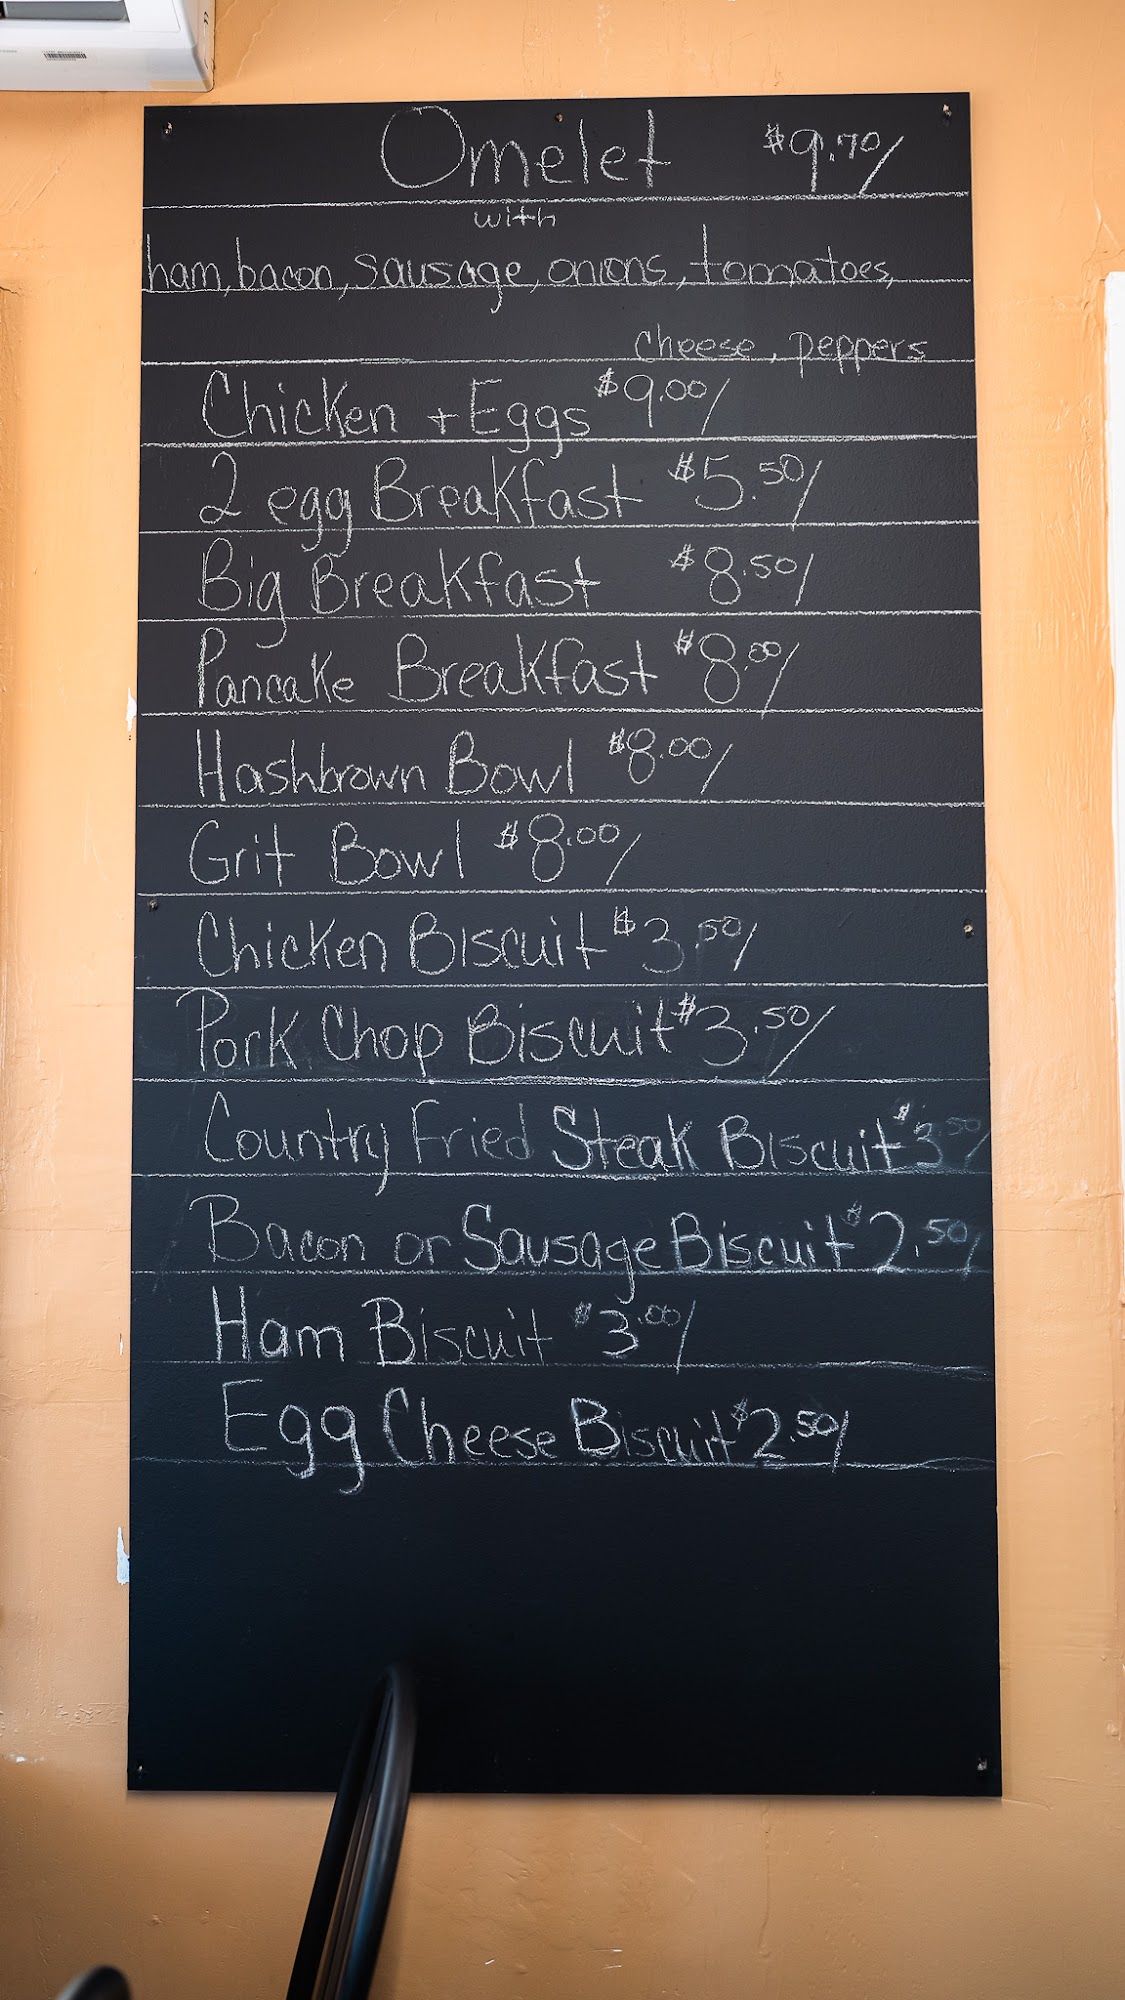 Omelet $9.70/
with
ham, bacon, sausage, onions, tomatoes,
cheese, peppers
Chicken + Eggs $9.00/
2 egg Breakfast $5.50/
Big Breakfast $8.50/
Pancake Breakfast $8.00/
Hashbrown Bowl $8.00/
Grit Bowl $8.00/
Chicken Biscuit $3.50/
Pork Chop Biscuit $3.50/
Country Fried Steak Biscuit $3.50/
Bacon or Sausage Biscuit $2.50/
Ham Biscuit $3.00/
Egg Cheese Biscuit $2.50/